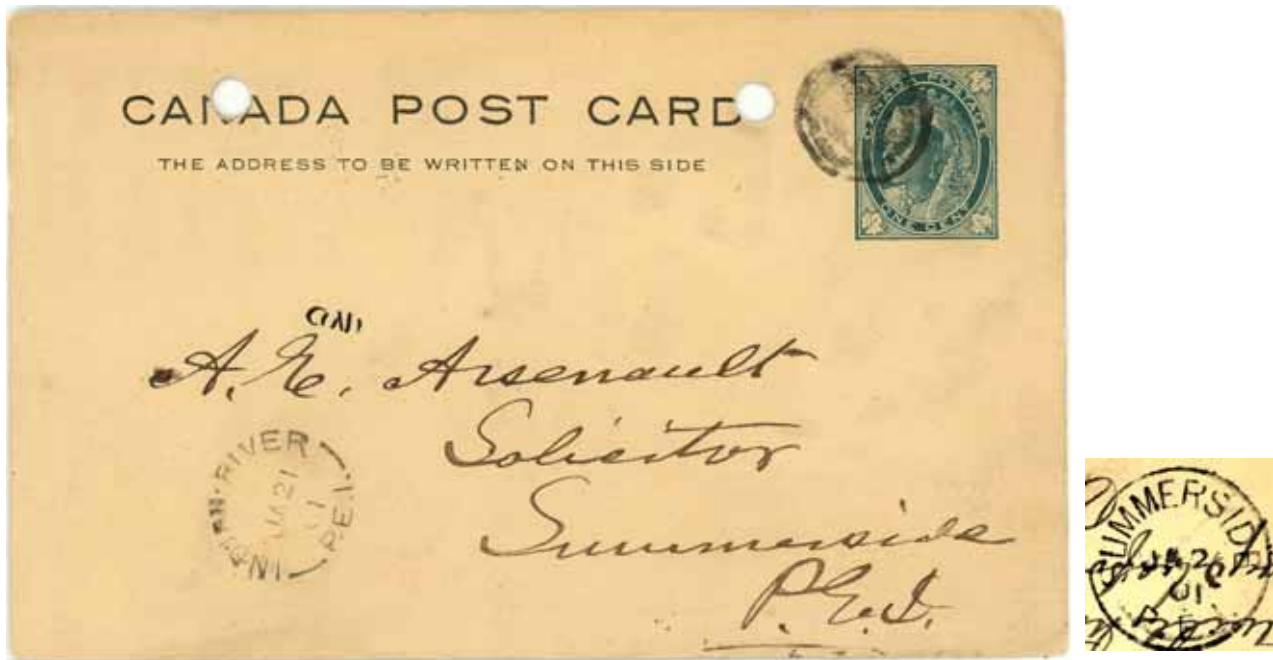 CANADA POST CARD
THE ADDRESS TO BE WRITTEN ON THIS SIDE
CANADA POSTAGE
ONE CENT
A. E. Arsenault
Solicitor
Summerside
P.E.I.
INDIAN RIVER
JA 21
P.E.I.
SUMMERSIDE
JA 2
01
P.E.